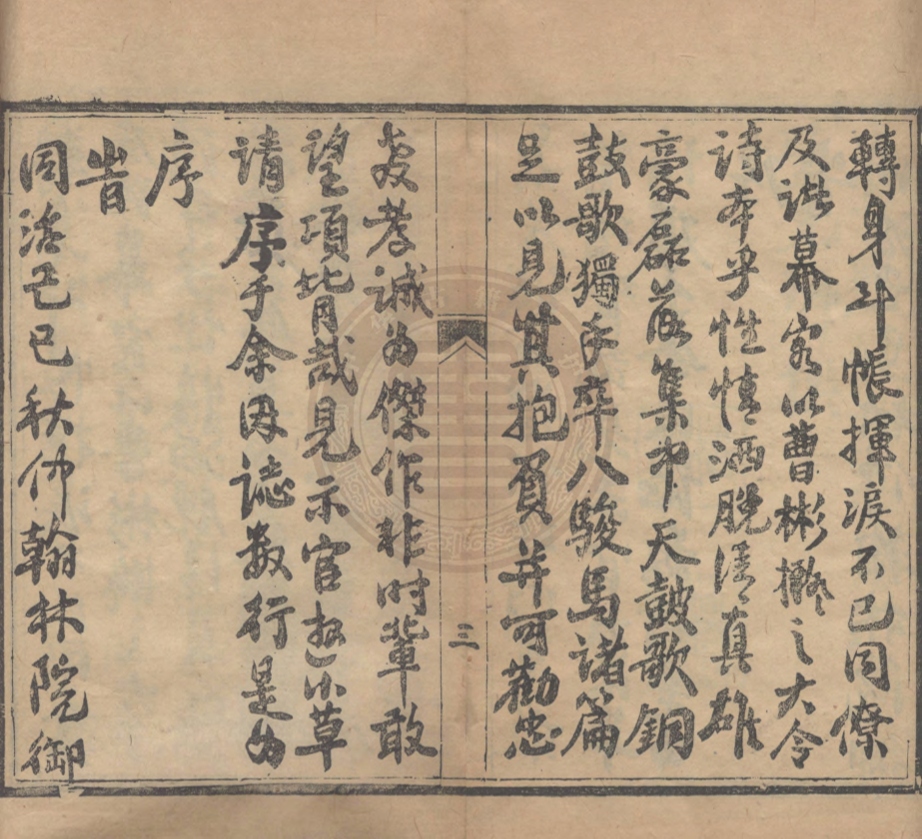 轉身斗帳揮淚不已同僚
及諸幕客以曹彬擬之大令
詩本乎性情洒脫清真雄
豪磊落集中天鼓歌銅
鼓歌獨手卒八駿馬諸篇
足以見其抱負并可勸忠
三
爰孝誠為傑作非時輩敢
望項背哉見示官拙小草
请序于余因誌数行是为
序
峕
同治己巳秋仲翰林院御